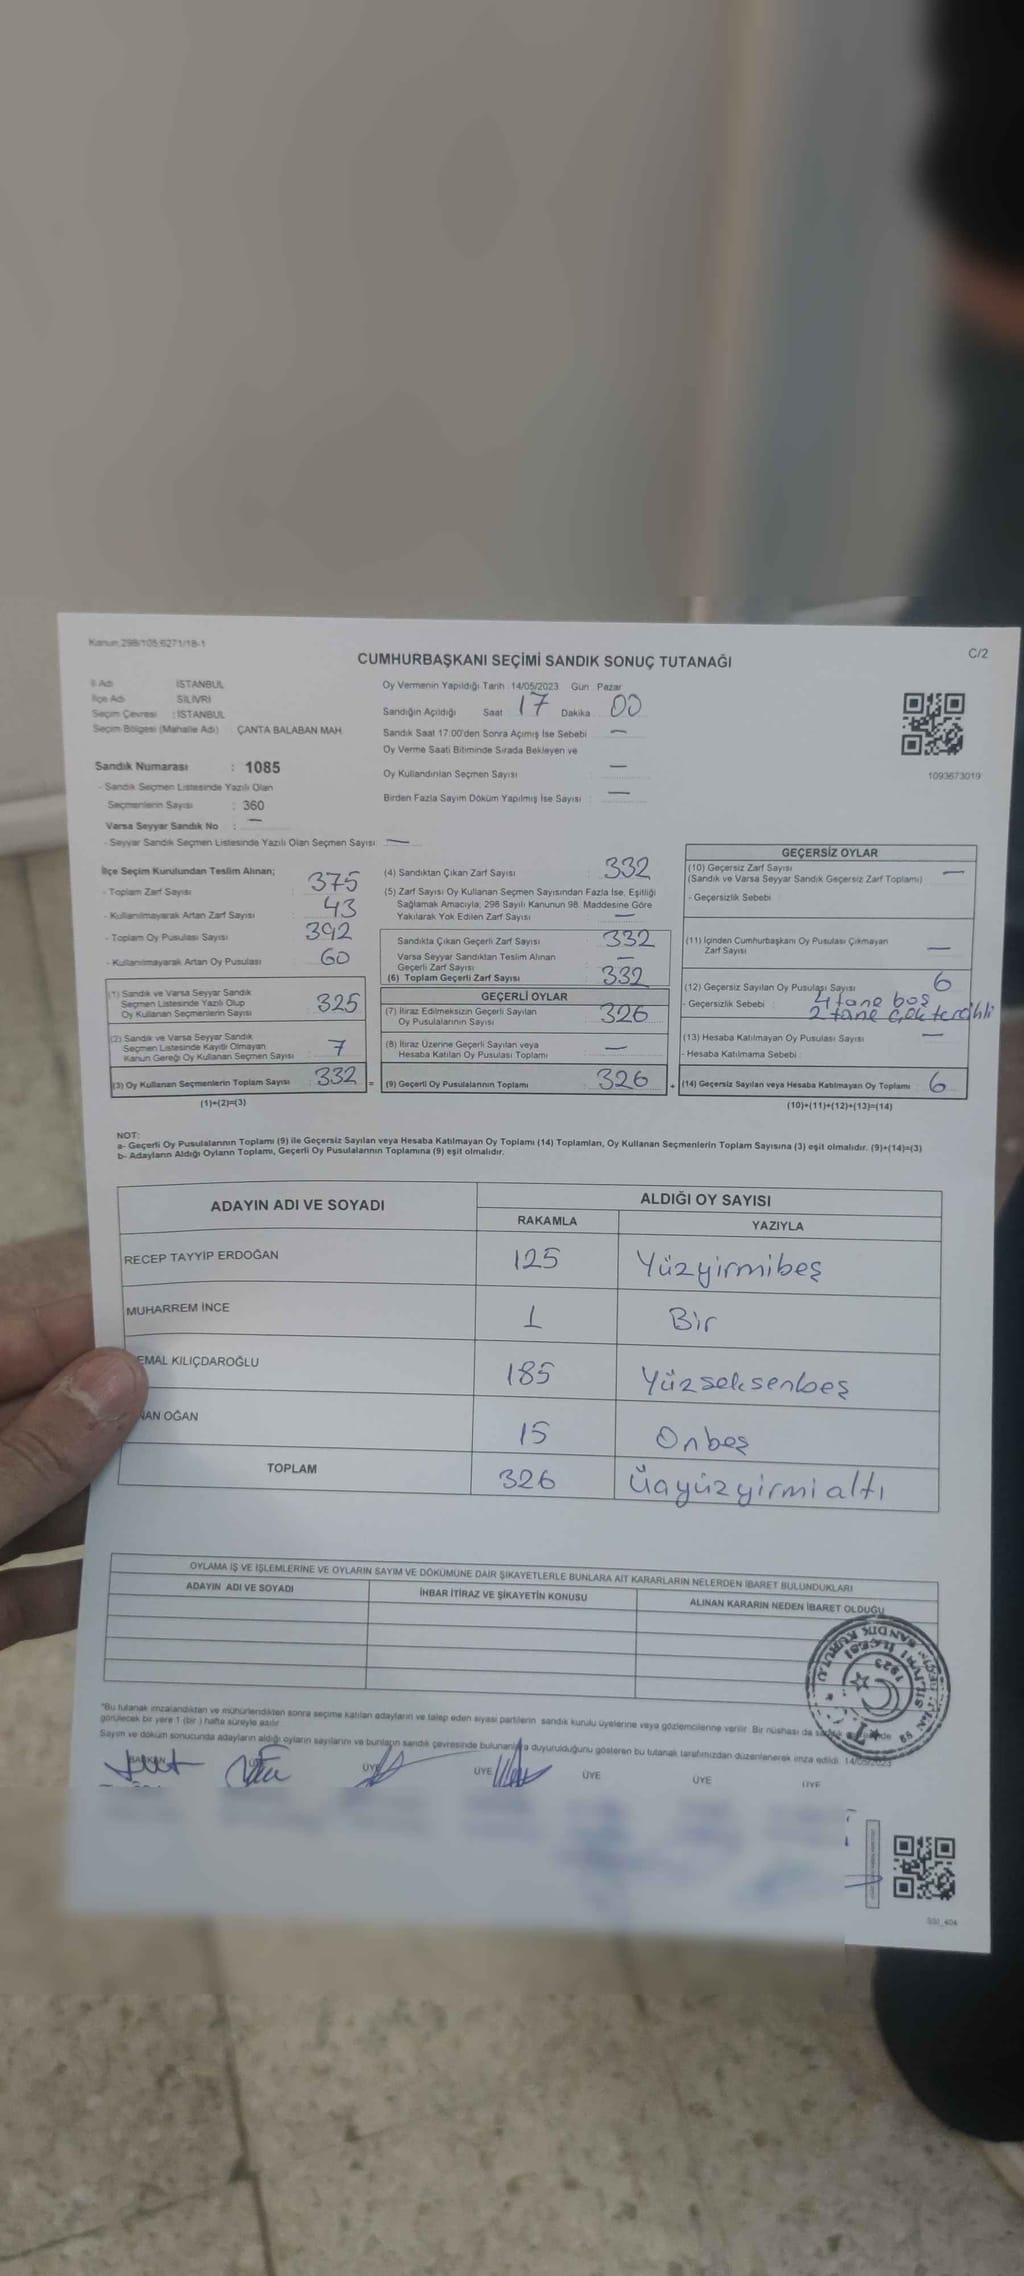 Kanun:298/105;6271/18-1
C/2
CUMHURBAŞKANI SEÇİMİ SANDIK SONUÇ TUTANAĞI
İl Adı İSTANBUL
İlçe Adı SİLİVRİ
Seçim Çevresi : İSTANBUL
Seçim Bölgesi (Mahalle Adı) : ÇANTA BALABAN MAH.
Sandık Numarası : 1085
- Sandık Seçmen Listesinde Yazılı Olan
Seçmenlerin Sayısı : 360
Varsa Seyyar Sandık No : —
- Seyyar Sandık Seçmen Listesinde Yazılı Olan Seçmen Sayısı : —
Oy Vermenin Yapıldığı Tarih : 14/05/2023 Gün : Pazar
Sandığın Açıldığı Saat : 17 Dakika : 00
Sandık Saat 17:00'den Sonra Açımış İse Sebebi : —
Oy Verme Saati Bitiminde Sırada Bekleyen ve
Oy Kullandırılan Seçmen Sayısı : —
Birden Fazla Sayım Döküm Yapılmış İse Sayısı : —
1093673019
İlçe Seçim Kurulundan Teslim Alınan;
- Toplam Zarf Sayısı : 375
- Kullanılmayarak Artan Zarf Sayısı : 43
- Toplam Oy Pusulası Sayısı : 392
- Kullanılmayarak Artan Oy Pusulası : 60
(1) Sandık ve Varsa Seyyar Sandık
Seçmen Listesinde Yazılı Olup
Oy Kullanan Seçmenlerin Sayısı : 325
(2) Sandık ve Varsa Seyyar Sandık
Seçmen Listesinde Kayıtlı Olmayan
Kanun Gereği Oy Kullanan Seçmen Sayısı : 7
(3) Oy Kullanan Seçmenlerin Toplam Sayısı : 332 =
(1)+(2)=(3)
(4) Sandıktan Çıkan Zarf Sayısı : 332
(5) Zarf Sayısı Oy Kullanan Seçmen Sayısından Fazla İse, Eşitliği
Sağlamak Amacıyla, 298 Sayılı Kanunun 98. Maddesine Göre
Yakılarak Yok Edilen Zarf Sayısı : —
Sandıkta Çıkan Geçerli Zarf Sayısı : 332
Varsa Seyyar Sandıktan Teslim Alınan
Geçerli Zarf Sayısı : —
(6) Toplam Geçerli Zarf Sayısı : 332
GEÇERLİ OYLAR
(7) İtiraz Edilmeksizin Geçerli Sayılan
Oy Pusulalarının Sayısı : 326
(8) İtiraz Üzerine Geçerli Sayılan veya
Hesaba Katılan Oy Pusulası Toplamı : —
(9) Geçerli Oy Pusulalarının Toplamı : 326 +
GEÇERSİZ OYLAR
(10) Geçersiz Zarf Sayısı
(Sandık ve Varsa Seyyar Sandık Geçersiz Zarf Toplamı) : —
- Geçersizlik Sebebi :
(11) İçinden Cumhurbaşkanı Oy Pusulası Çıkmayan
Zarf Sayısı : —
(12) Geçersiz Sayılan Oy Pusulası Sayısı : 6
- Geçersizlik Sebebi : 4 tane boş
2 tane çok tercihli
(13) Hesaba Katılmayan Oy Pusulası Sayısı : —
- Hesaba Katılmama Sebebi :
(14) Geçersiz Sayılan veya Hesaba Katılmayan Oy Toplamı : 6
(10)+(11)+(12)+(13)=(14)
NOT:
a- Geçerli Oy Pusulalarının Toplamı (9) ile Geçersiz Sayılan veya Hesaba Katılmayan Oy Toplamı (14) Toplamları, Oy Kullanan Seçmenlerin Toplam Sayısına (3) eşit olmalıdır. (9)+(14)=(3)
b- Adayların Aldığı Oyların Toplamı, Geçerli Oy Pusulalarının Toplamına (9) eşit olmalıdır.
ADAYIN ADI VE SOYADI ALDIĞI OY SAYISI
RAKAMLA YAZIYLA
RECEP TAYYİP ERDOĞAN 125 Yüzyirmibeş
MUHARREM İNCE 1 Bir
EMAL KILIÇDAROĞLU 185 Yüzseksenbeş
NAN OĞAN 15 Onbeş
TOPLAM 326 Üçyüzyirmialtı
OYLAMA İŞ VE İŞLEMLERİNE VE OYLARIN SAYIM VE DÖKÜMÜNE DAİR ŞİKAYETLERLE BUNLARA AİT KARARLARIN NELERDEN İBARET BULUNDUKLARI
ADAYIN ADI VE SOYADI İHBAR İTİRAZ VE ŞİKAYETİN KONUSU ALINAN KARARIN NEDEN İBARET OLDUĞU
SİLİVRİ İLÇESİ SANDIK KURULU 1923
*Bu tutanak imzalandıktan ve mühürlendikten sonra seçime katılan adayların ve talep eden siyasi partilerin sandık kurulu üyelerine veya gözlemcilerine verilir. Bir nüshası da
görülecek bir yere 1 (bir) hafta süreyle asılır.
Sayım ve döküm sonucunda adayların aldığı oyların sayılarını ve bunların sandık çevresinde bulunanlara duyurulduğunu gösteren bu tutanak tarafımızdan düzenlenerek imza edildi. 14/05/2023
BAŞKAN ÜYE ÜYE ÜYE ÜYE ÜYE